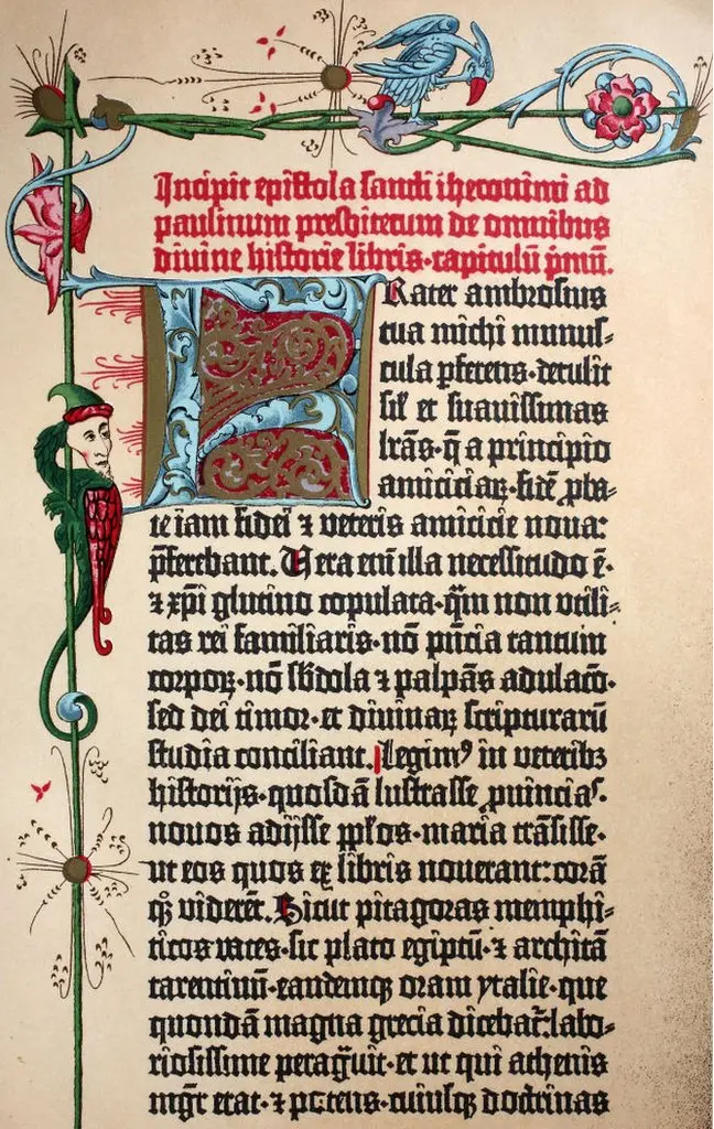 Incipit epistola sancti iheronimi ad
paulinum presbiterum de omnibus
divine historie libris·capitulū pmū.
FRater ambrosius
tua michi munus-
cula pferens·detulit
sil' et suavissimas
lrās·q̄ a principio
amiciciaꝝ·fidē pba-
te iam fidei ⁊ veteris amicicie nova:
pferebant. Vera enī illa necessitudo ē·
⁊ xp̄i glutino copulata·q̄m non utili-
tas rei familiaris·nō pn̄cia tantum
corpoꝝ·nō sb̄dola ⁊ palpās adulacō·
sed dei timor·et divinaꝝ scripturarū
studia conciliant. Legimꝰ in veteribꝫ
historijs·quosdā lustrasse ꝓvincias·
novos adijsse pp̄los·maria trāsisse·
ut eos quos ex libris noverant: corā
qꝫ viderēt. Sicut pitagoras memphi-
ticos vates·sic plato egiptū·⁊ architā
tarentinū·eandemqꝫ oram ytalie·que
quondā magna grecia dicebat̄: labo-
riosissime peragͣvit·et ut qui athenis
mgr̄ erat·⁊ potens·cuiusqꝫ doctrinas